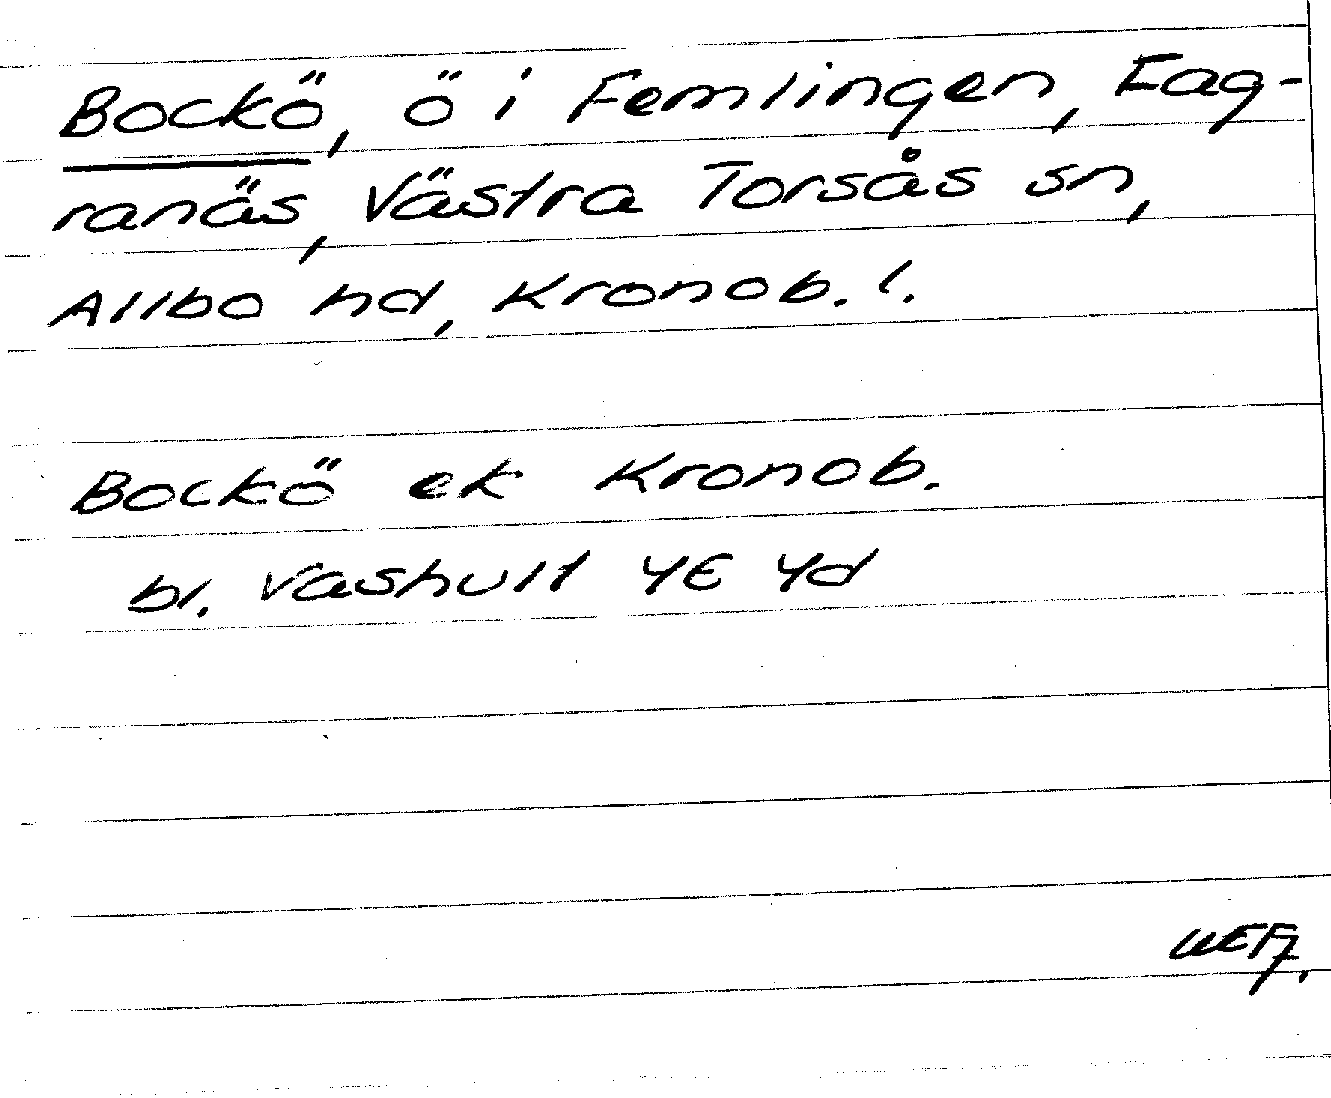 Bockö, ö i Femlingen, Fag-
ranäs, Västra Torsås sn,
Allbo hd, Kronob. l.
Bockö ek Kronob.
bl. Vashult 4E 4d